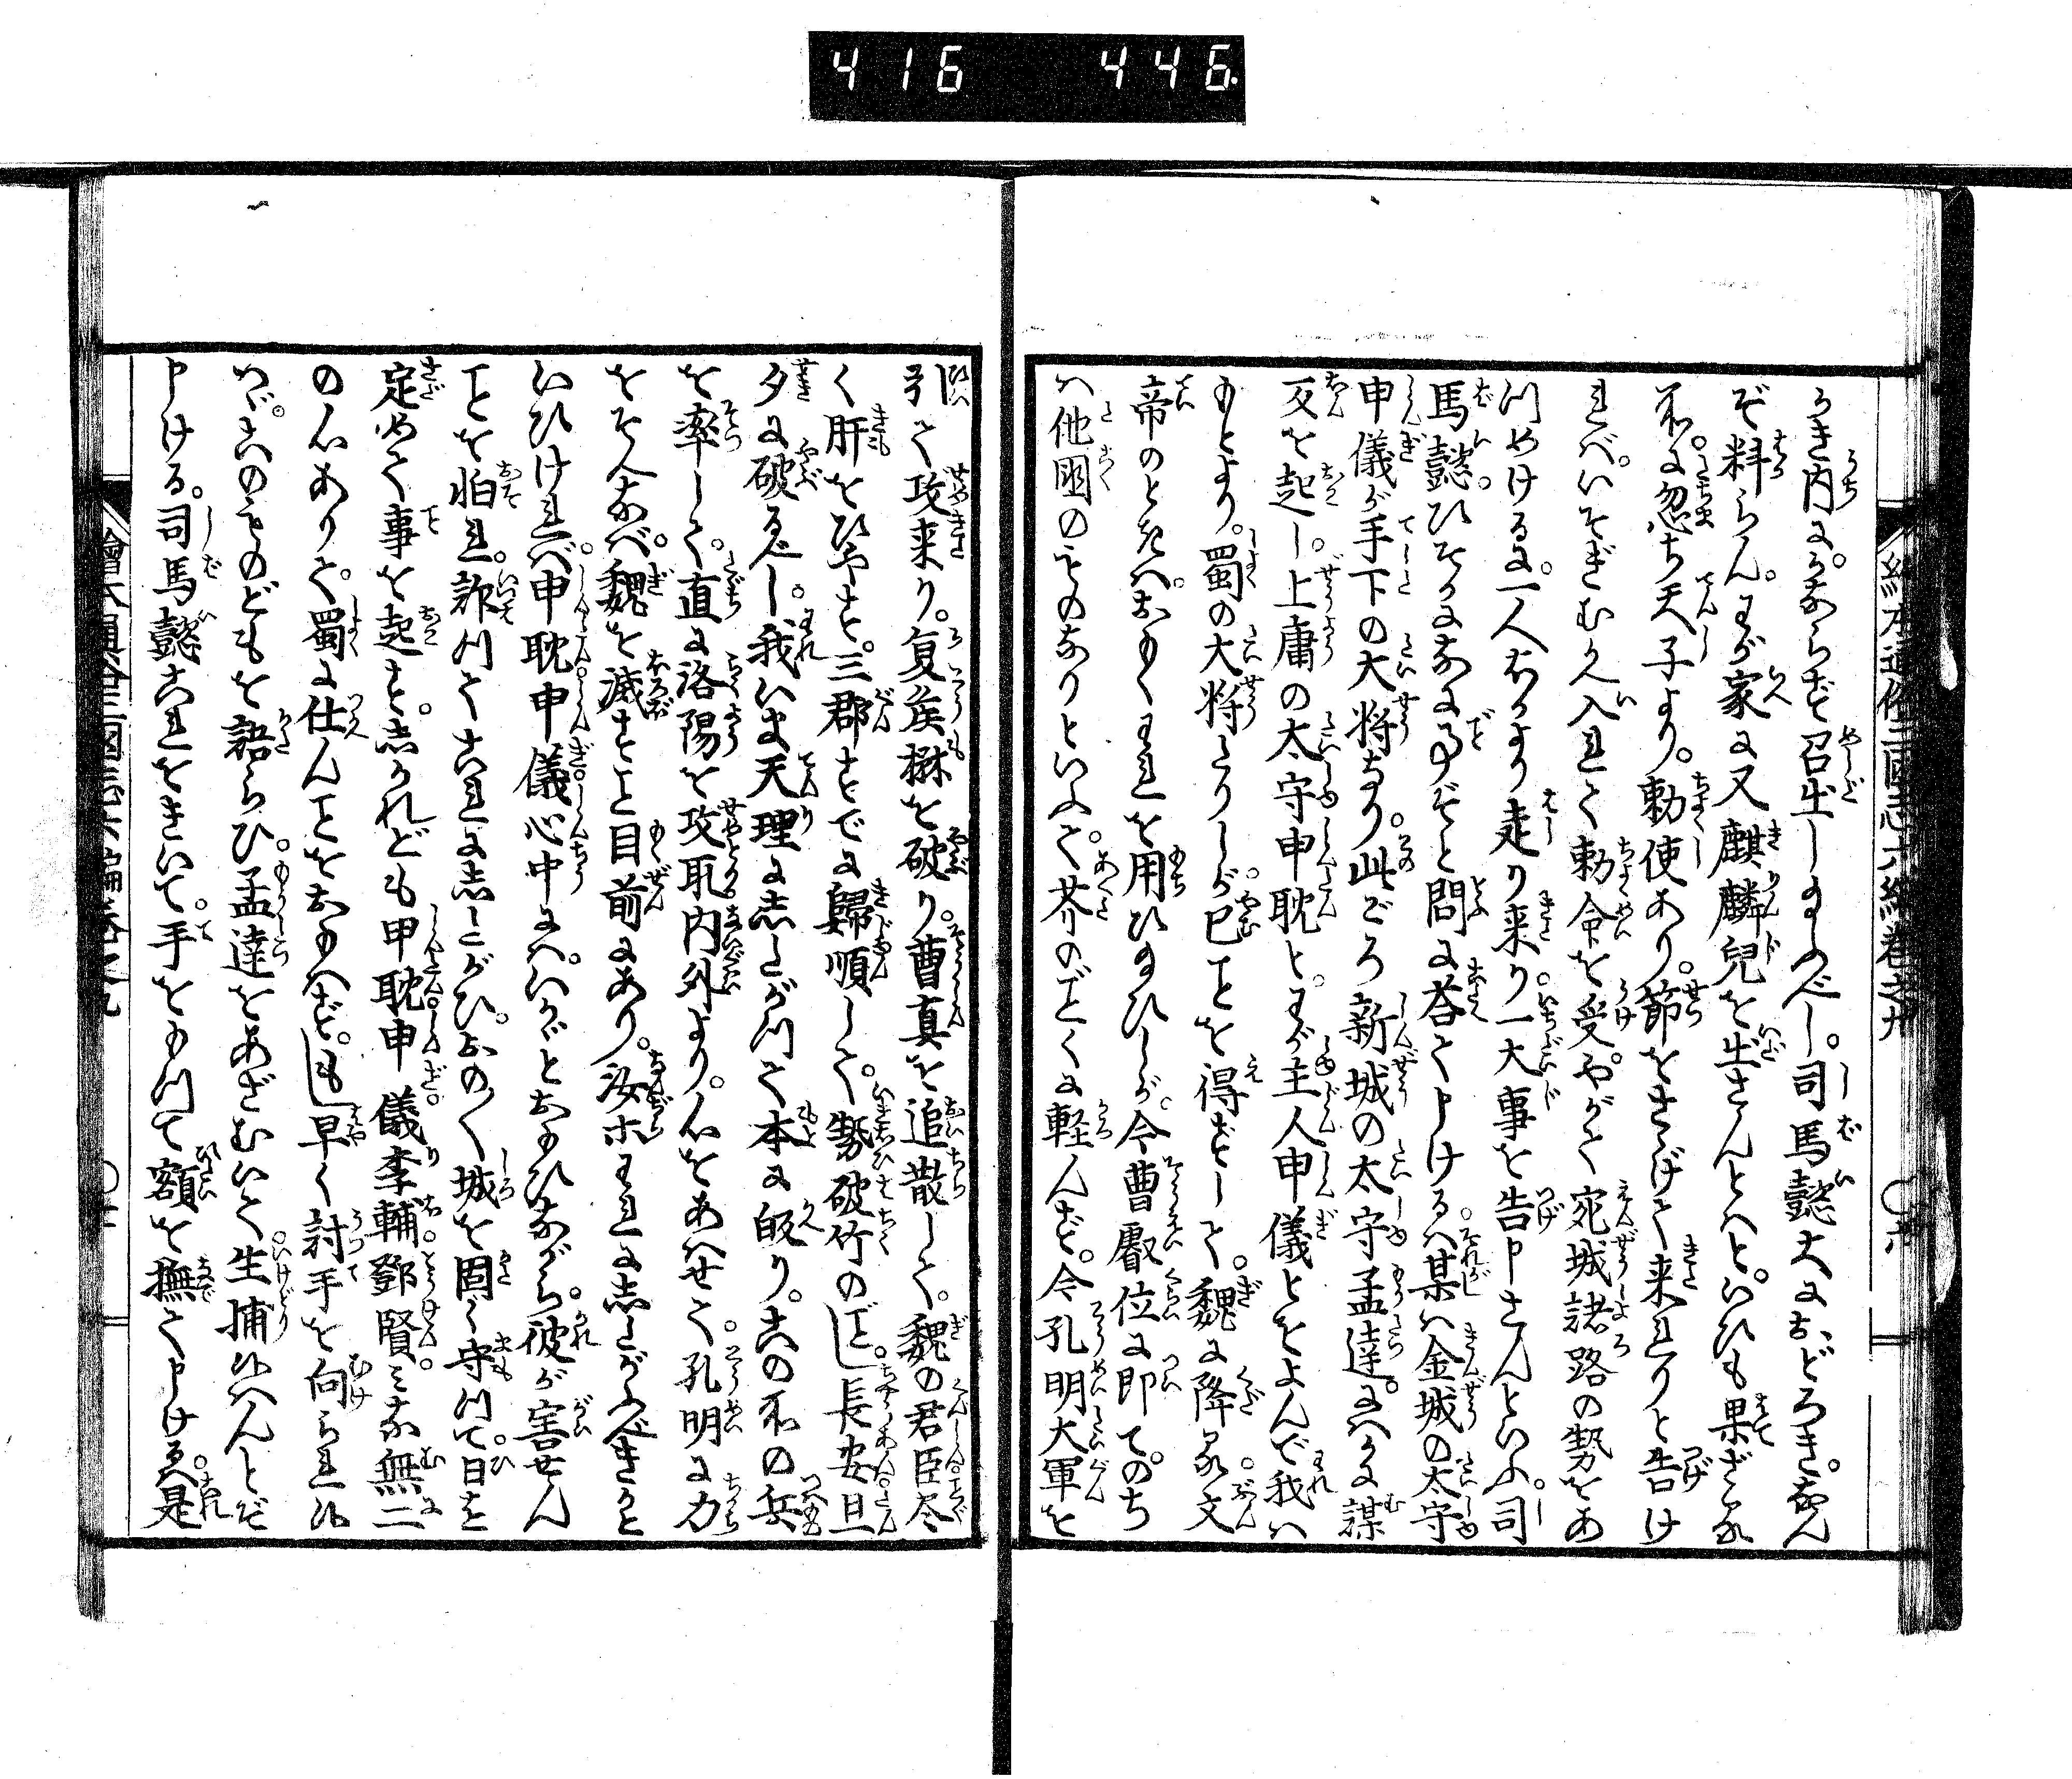 416 446.
繪本通俗三國志六編卷之九
うき内に。かならず召出し玉ふべし。司馬懿大におどろき。なん
ぞ料らん。わが家に又麒麟兒を生さんとはと。いひも果ざるに
不に忽ち天子より。勅使あり。節をさゝげて来れりと告け
れば。いそぎむかへ入れて勅命を受。やがて宛城諸路の勢をあ
つめけるに。一人おくより走り来り。一大事を告申さんといふ。司
馬懿ひそかになに事ぞと問に荅て申けるは。某は金城の太守
申儀が手下の大将なり。此ごろ新城の太守孟達。にはかに謀
反を起し。上庸の太守申耽と。わが主人申儀とをよんで我は
もとより。蜀の大将たりしが。已ことを得ずして。魏に降る。文
帝のときは。おもくわれを用ひ玉ひしが。今曹叡位に即て。のち
は他国のものなりといふて。芥のごとくに軽んず。今孔明大軍を
引て攻来り。夏侯楙を破り。曹真を追散して。魏の君臣尽
く肝をひやす。三郡すでに歸順して。勢破竹のごとし。長安旦
夕に破るべし。我いま天理にしたがつて本に皈り。この不の兵
を率して。直に洛陽を攻取。内外より。心をあはせて。孔明に力
をそへなば。魏を滅すこと目前にあり。汝ホわれにしたがふべきかと
いひければ。申耽申儀心中には。いかゞとおもひながら。彼が害せん
ことを怕れ。詐つてこれにしたがひ。おのく城を固く守つて。日を
定めて事を起す。しかれども申耽申儀李輔鄧賢みな無二
の心ありて。蜀に仕んことをおもはず。もし早く討手を向られ候
はゞ。このものどもを語らひ。孟達をあざむいて生捕候はんとぞ
申ける。司馬懿これをきいて。手をもつて額を撫て申けるは。是
繪本通俗三國志六編卷之九